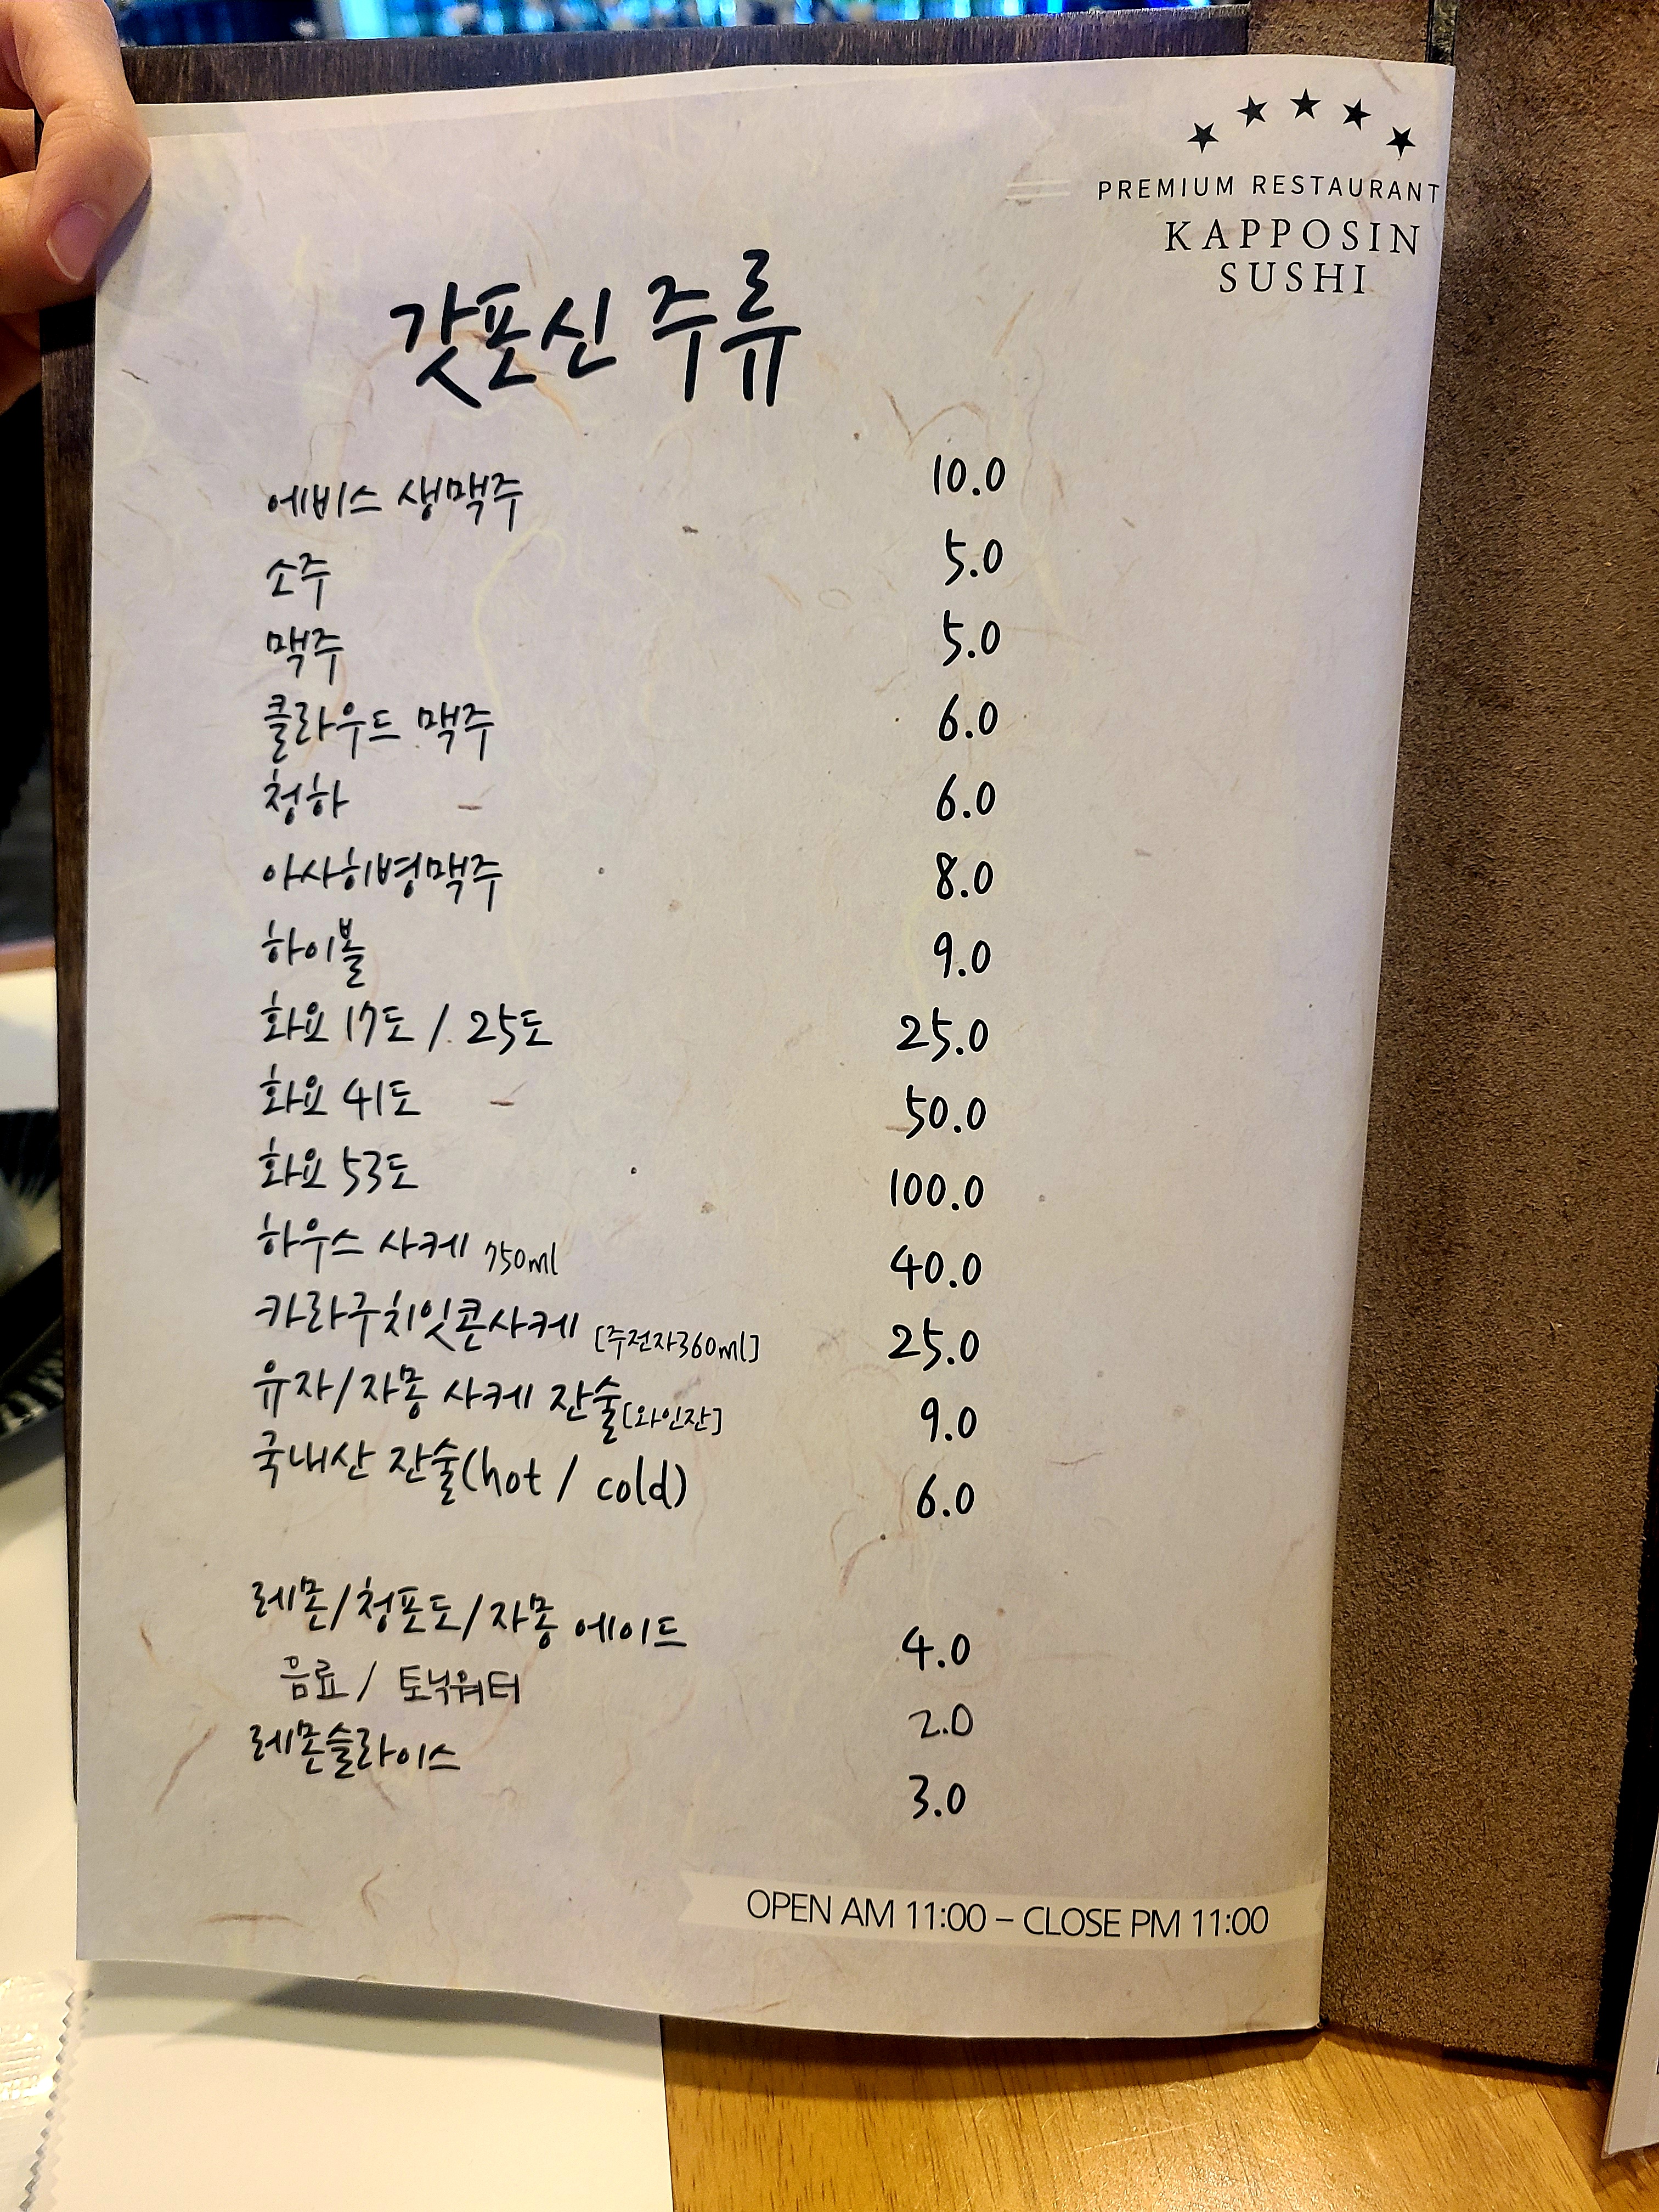 PREMIUM RESTAURANT
KAPPOSIN
SUSHI
갓포신 주류
에비스 생맥주 10.0
소주 5.0
맥주 5.0
클라우드 맥주 6.0
청하 6.0
아사히병맥주 8.0
하이볼 9.0
화요 17도 / 25도 25.0
화요 41도 50.0
화요 53도 100.0
하우스 사케 750ml 40.0
카라구치잇콘사케 [주전자360ml] 25.0
유자/자몽 사케 잔술[와인잔] 9.0
국내산 잔술(hot / cold) 6.0
레몬/청포도/자몽 에이드 4.0
음료 / 토닉워터 2.0
레몬슬라이스 3.0
OPEN AM 11:00 – CLOSE PM 11:00